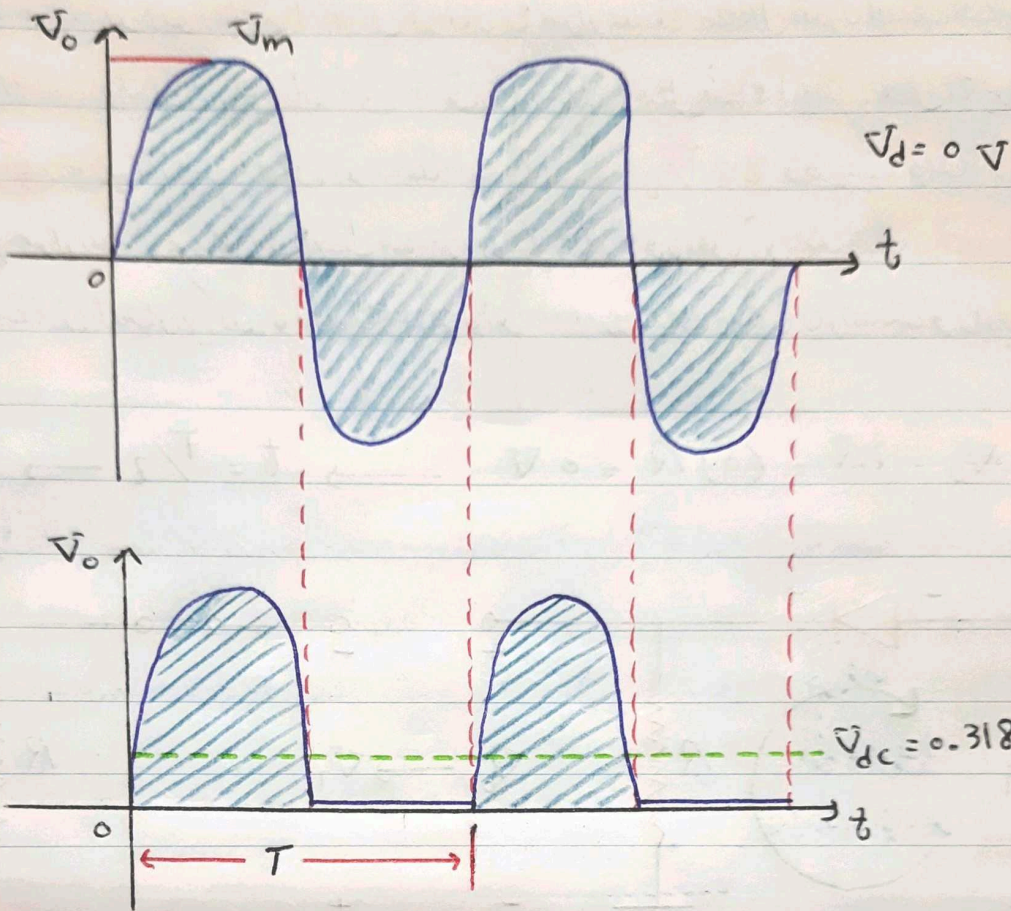 Vo
Vm
Vd = 0 V
t
0
Vo
Vdc = 0.318
t
0
T